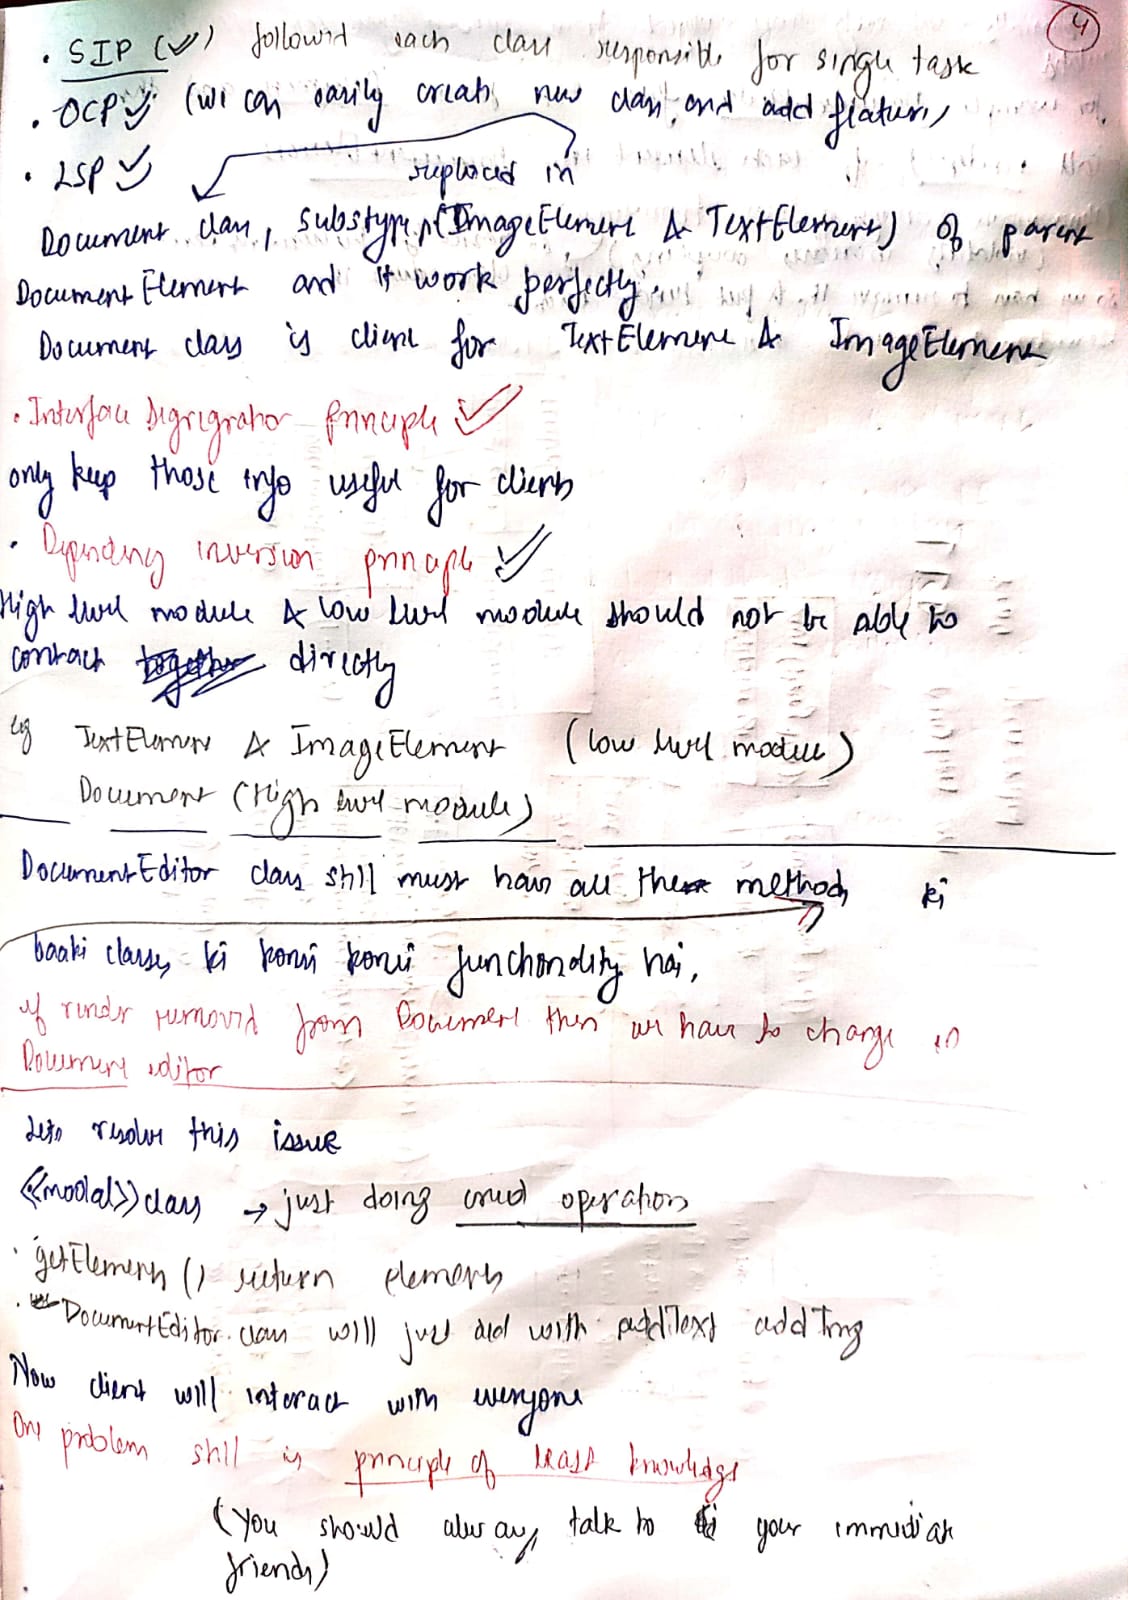 4
· SIP (✓) followed each class responsible for single task
· OCP ✓ (we can easily create new class, and add features)
· LSP ✓ replaced in
Document class, substype (ImageElement & TextElement) of parent
DocumentElement and it work perfectly.
Document class is client for TextElement & ImageElement
· Interface Segrigration Principle ✓
only keep those info useful for clients
· Dependency inversion principle ✓
High level module & low level module should not be able to
contact together directly
eg TextElement & ImageElement (low level module)
Document (High level module)
DocumentEditor class still must have all these methods ki
baaki classes ki konsi konsi functionality hai,
if render removed from Document then we have to change in
Document editor
Lets resolve this issue
<<modal>> class → just doing crud operations
· getElements() return elements
· DocumentEditor class will just deal with addText addImg
Now client will interact with everyone
One problem still is principle of least knowledge
(you should always talk to your immediate
friends)